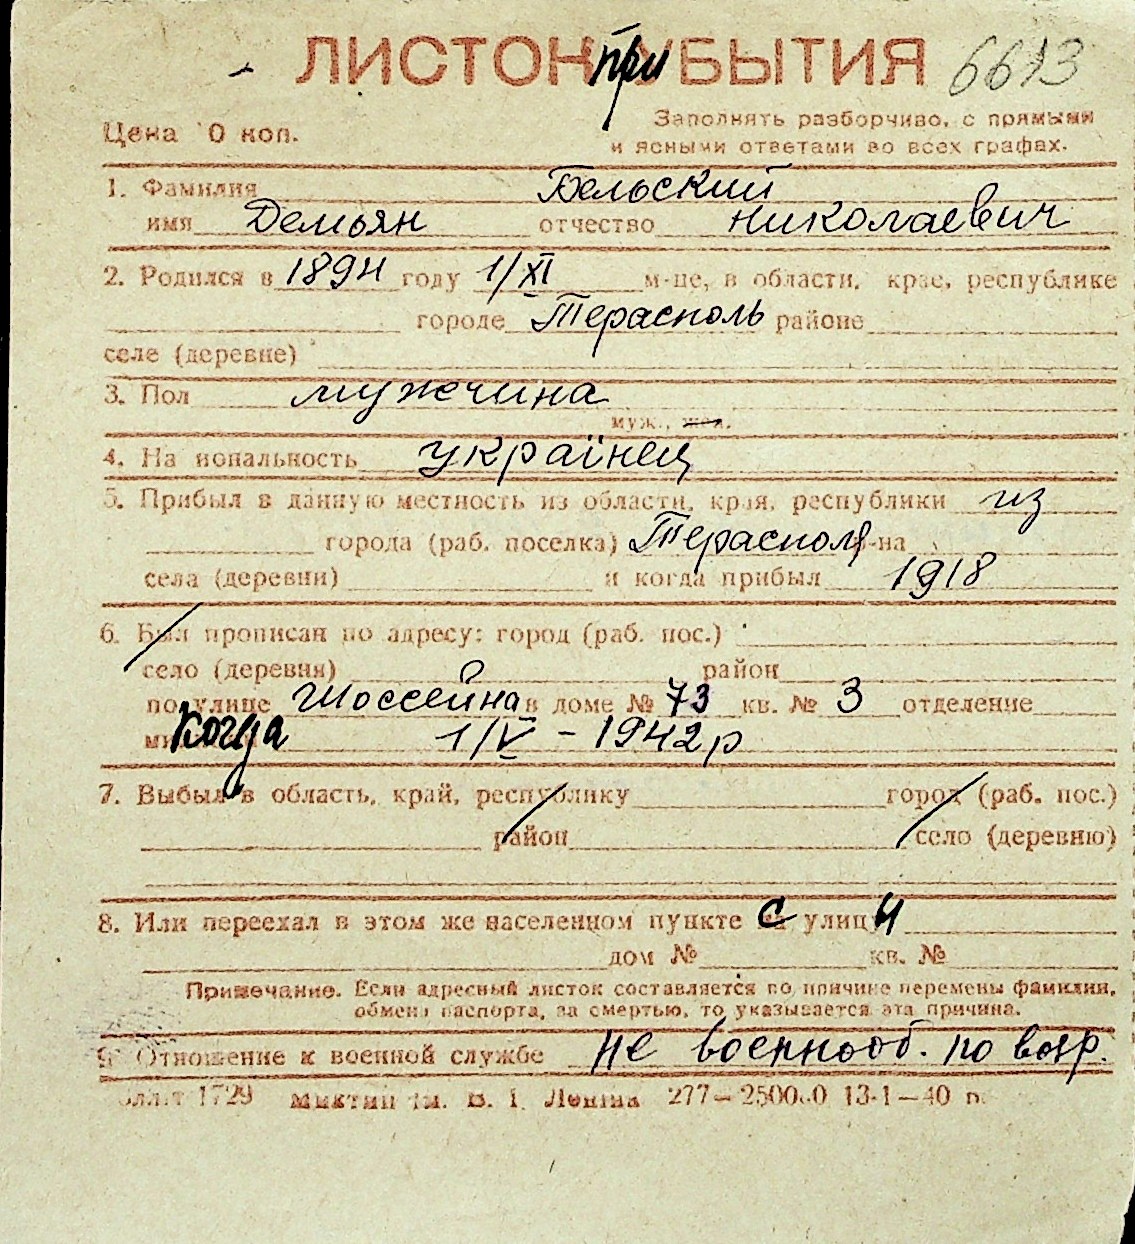 ЛИСТОК при УБЫТИЯ 6613
Цена 10 коп.
Заполнять разборчиво, с прямыми
и ясными ответами во всех графах.
1. Фамилия Бельский
имя Демьян отчество Николаевич
2. Родился в 1894 году 1/XI м-це, в области, крае, республике
городе Терасполь районе
селе (деревне)
3. Пол мужчина
муж., жен.
4. Национальность українец
5. Прибыл в данную местность из области, края, республики из
города (раб. поселка) Терасполя р-на
села (деревни) и когда прибыл 1918
6. Был прописан по адресу: город (раб. пос.)
село (деревня) район
по улице Шоссейна в доме № 73 кв. № 3 отделение
Когда 1/V - 1942 р
7. Выбыл в область, край, республику город (раб. пос.)
район село (деревню)
8. Или переехал в этом же населенном пункте с улицы
дом № кв. №
Примечание. Если адресный листок составляется по причине перемены фамилии,
обмена паспорта, за смертью, то указывается эта причина.
9. Отношение к военной службе не военнооб. по возр.
1729 им. В. І. Леніна 277—250000 13-1—40 р.